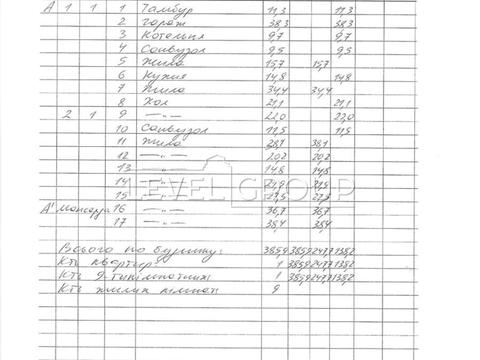 А 1 1 1 Тамбур 11,3 11,3
2 гараж 38,3 38,3
3 Котельня 9,7 9,7
4 Санвузол 9,5 9,5
5 Жила 15,7 15,7
6 Кухня 14,8 14,8
7 Жила 34,4 34,4
8 Хол 21,1 21,1
2 1 9 —„— 22,0 22,0
10 Санвузол 11,5 11,5
11 Жила 38,1 38,1
12 —„— 20,2 20,2
13 —„— 14,8 14,8
14 —„—
15 —„—
LEVEL GROUP
А' мансарда 16 —„— 36,7 36,7
17 —„— 38,4 38,4
Всього по будинку: 385,9 247,7 138,2
Кть квартир 1 385,9 247,7 138,2
Кть 9-тикімнатних 1 385,9 247,7 138,2
Кть жилих кімнат 9